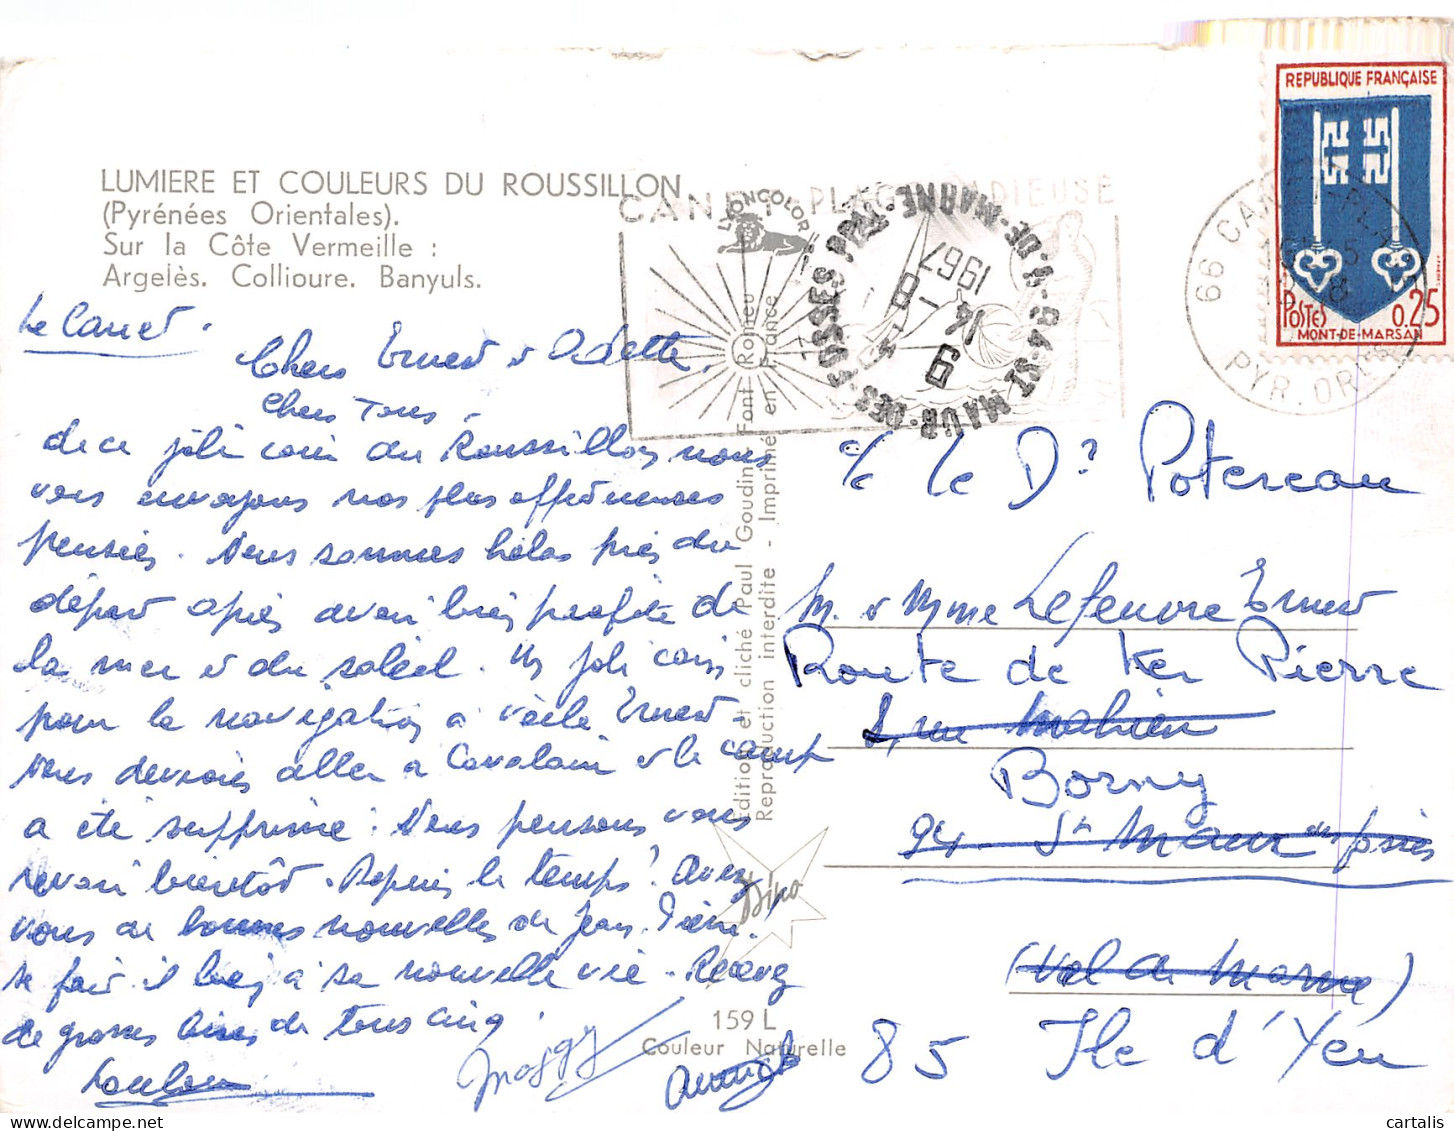 LUMIERE ET COULEURS DU ROUSSILLON
(Pyrénées Orientales).
Sur la Côte Vermeille :
Argelès. Collioure. Banyuls.
Le Canet.
Chers Ernest et Odette.
Chers Tous,
de ce joli coin du Roussillon nous
vous envoyons nos plus affectueuses
pensées. Nous sommes hélas près du
départ après avoir bien profité de
la mer et du soleil. Un joli coin
pour la navigation à voile Ernest.
Nous devrions aller à Cavalaire et le camp
a été supprimé. Nous pensons vous
revoir bientôt. Depuis le temps! Avez
vous de bonnes nouvelles de Jean. Pierre!
Se fait-il bien à sa nouvelle vie. Recevez
de grosses bises de tous cinq.
Loulou
Maggy
159 L
Couleur Naturelle
Edition et cliché Paul Goudin Font Romeu
Reproduction interdite - Imprimé en France
LYONCOLOR
CANET-PLAGE RADIEUSE
94-ST MAUR-DES-FOSSES PPAL
VAL-DE-MARNE
9
14-8
1967
66 CANET-PLAGE
PYR. ORLES
REPUBLIQUE FRANÇAISE
POSTES 0.25
MONT-DE-MARSAN
c/o Le Dr Potereau
M. et Mme Lefeuvre Ernest
Route de Ker Pierre
8, rue Mahieu
Borny
94 - St Maur des fossés
(Val de Marne)
85 Ile d'Yeu